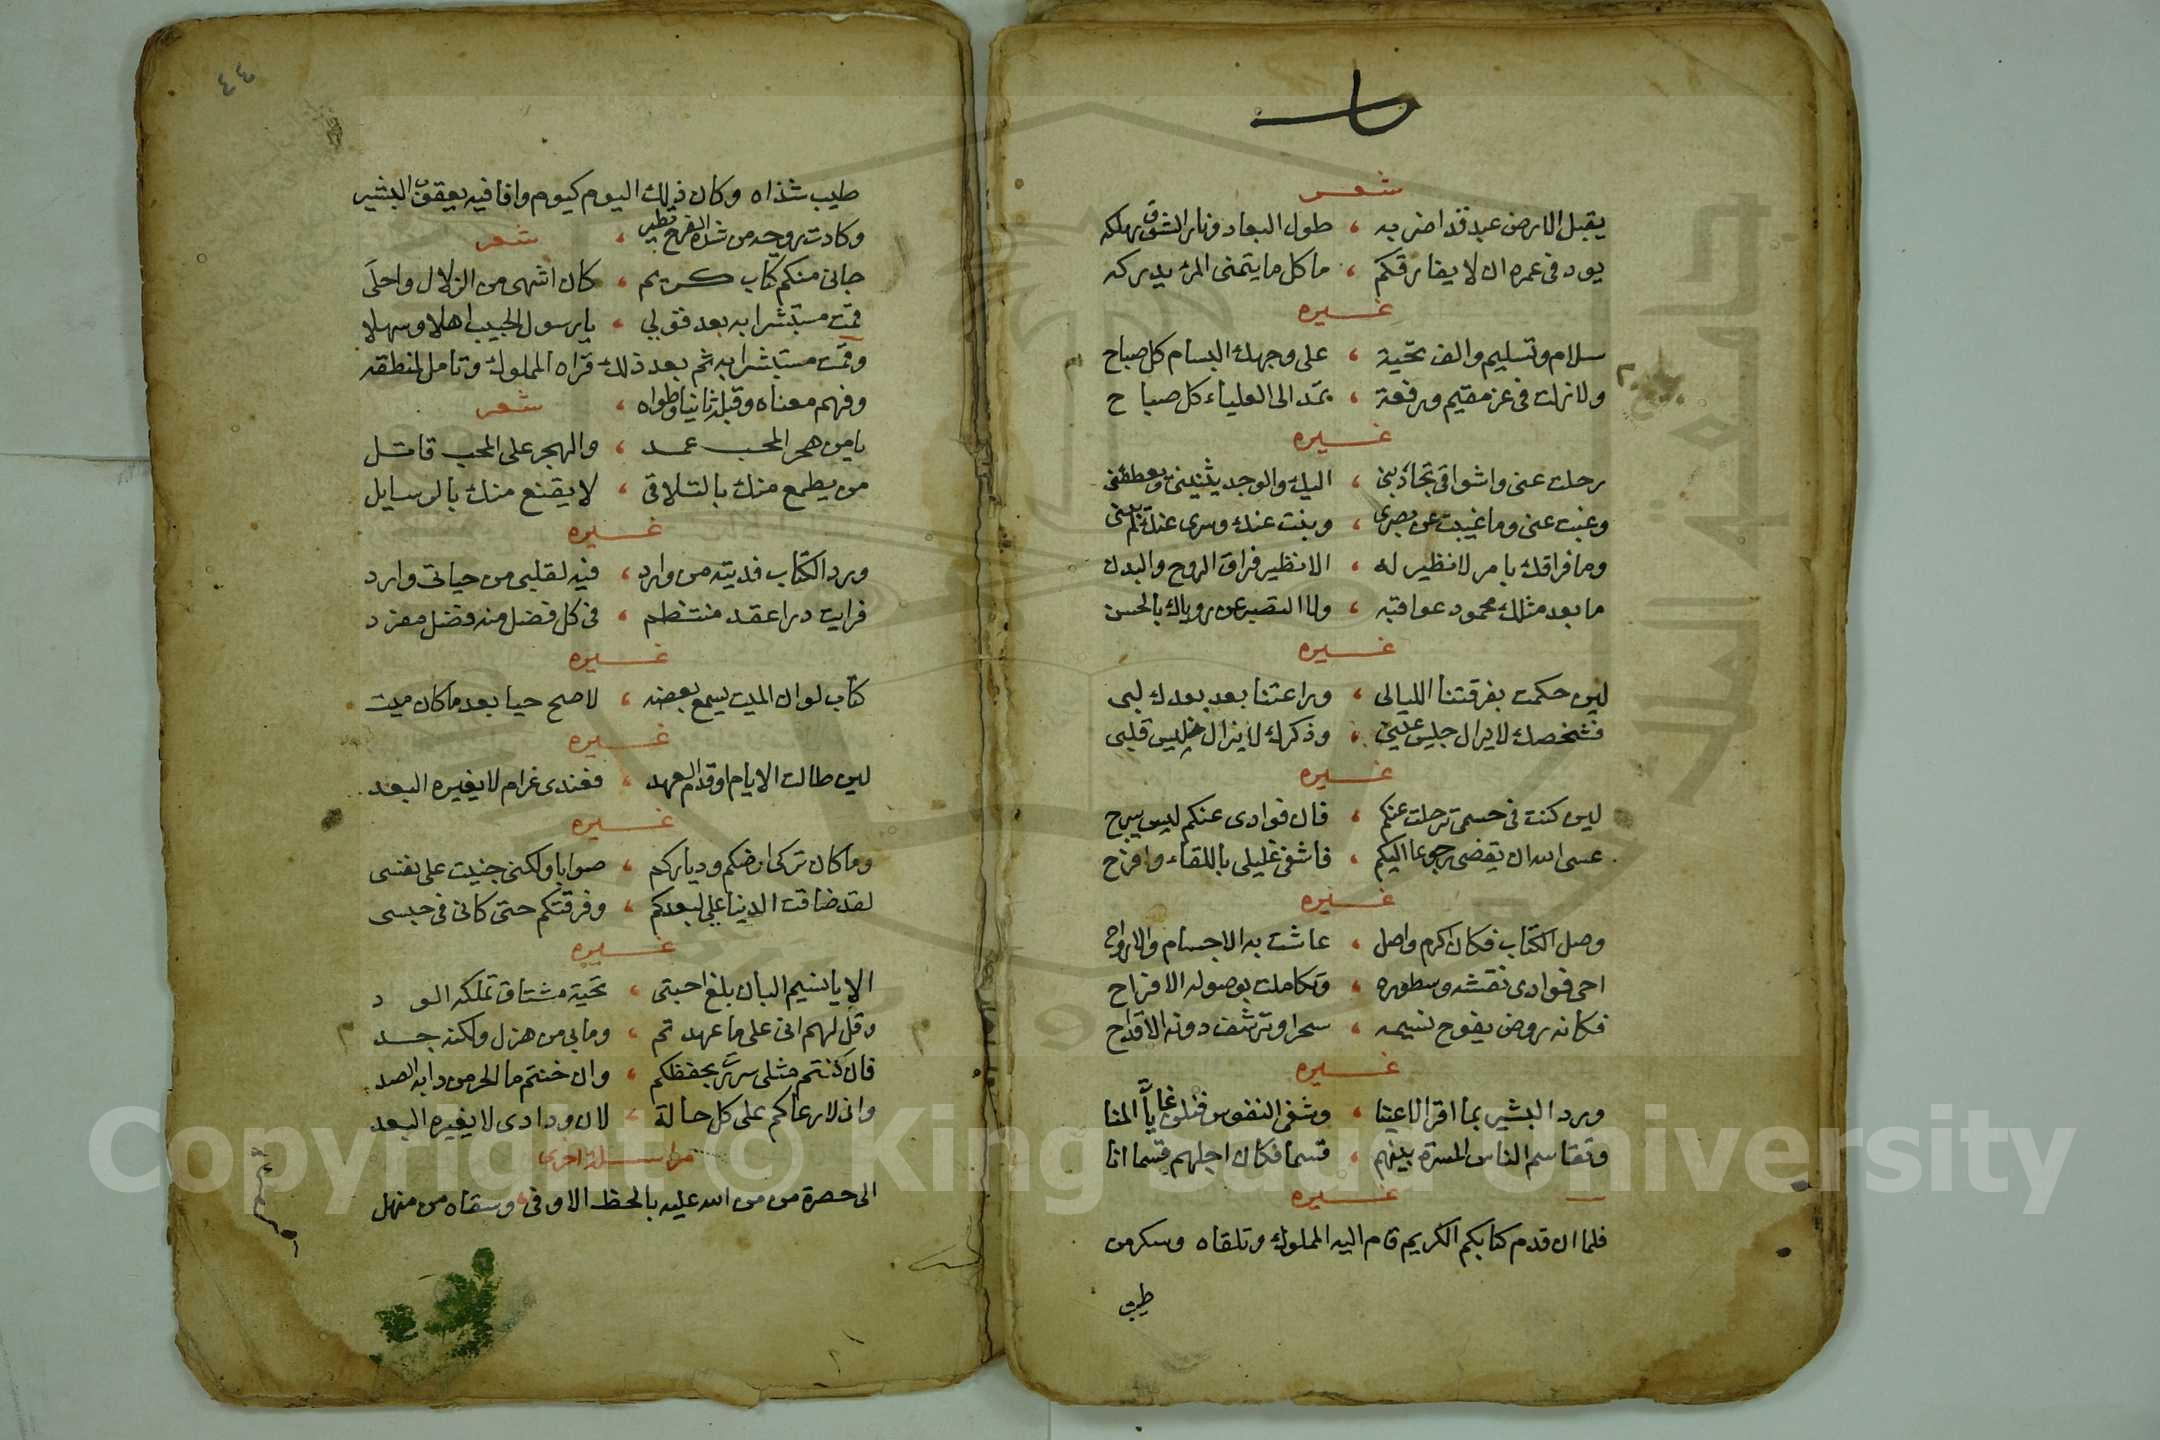 شعر
يقبل الارض عبد قد اضر به ، طول البعاد ونار الشوق تهلكه
يود في عمره ان لا يفارقكم ، ما كل ما يتمنى المرء يدركه
غيره
سلام وتسليم والف تحية ، على وجهك البسام كل صباح
ولا زلت في عز مقيم ورفعة ، تمد الى العلياء كل صباح
غيره
رحلت عنى واشواقى تجاذبنى ، اليك والوجد يثنينى ويعطفنى
وغبت عنى وما غيبت عن بصرى ، وبنت عنك وسرى عنك لم يبنى
وما فراقك يا من لا نظير له ، الا نظير فراق الروح والبدن
ما بعد مثلك محمود عواقبه ، ولا التصبر عن روياك بالحسن
غيره
لين حكمت بفرقتنا الليالى ، وراعتنا ببعد بعدك لبى
فشخصك لايزال جليس عينى ، وذكرك لايزال جليس قلبى
غيره
لين كنت فى جسمى ترحلت عنكم ، فان فوادى عنكم ليس يبرح
عسى الله ان يقضى رجوعا اليكم ، فاشفى غليلى باللقاء وافرح
غيره
وصل الكتاب فكان اكرم واصل ، عاشت به الاجسام والارواح
احى فوادى نقشه وسطوره ، وتكاملت بوصوله الافراح
فكانه روض يفوح نسيمه ، سحرا وترشف دونه الاقداح
غيره
ورد البشير بما اقر الاعينا ، وشفى النفوس فنلن غايات المنا
وتقاسم الناس المسرة بينهم ، قسما فكان اجلهم قسما انا
غيره
فلما ان قدم كتابكم الكريم قام اليه المملوك وتلقاه وسكر من
طيب
٤٤
طيب شذاه وكان ذلك اليوم كيوم وافا فيه يعقوب البشير
وكادت روحه من شدة الفرح تطير ، شعر
جانى منكم كتاب كريم ، كان اشهى من الزلال واحلى
قمت مستبشرا به بعد قولي ، يا رسول الحبيب اهلا وسهلا
وقمت مستبشرا به ثم بعد ذلك قراه المملوك وتامل لمنطقه
وفهم معناه وقبله ثانيا وطواه ، شعر
يا من هجر المحب عمد ، والهجر على المحب قاتل
من يطمع منك بالتلاقى ، لا يقنع منك بالرسايل
غيره
ورد الكتاب فديته من وارد ، فيه لقلبى من حياتى وارد
فرايت درا عقد منتظم ، فى كل فضل منه فضل مفرد
غيره
كتاب لو ان الميت يسمع بعضه ، لاصبح حيا بعد ما كان ميت
غيره
لين طالت الايام او قدم العهد ، فعندى غرام لا يغيره البعد
غيره
وما كان تركى ارضكم ودياركم ، صوابا ولكنى جنيت على نفسى
لقد ضاقت الدنيا على لبعدكم ، وفرقتكم حتى كانى فى حبسى
غيره
الا يا نسيم البان بلغ احبتى ، تحية مشتاق تملكه الود
وقل لهم انى على ما عهدتم ، وما بى من هزل ولكنه جد
فان كنتم مثلى سررت بحفظكم ، وان خنتم ما الحر من دابه الصد
وانى لارعاكم على كل حالة ، لان ودادى لا يغيره البعد
مراسلة اخرى
الى حضرة من من الله عليه بالحظ الاوفى وسقاه من منهل
Copyright © King Saud University